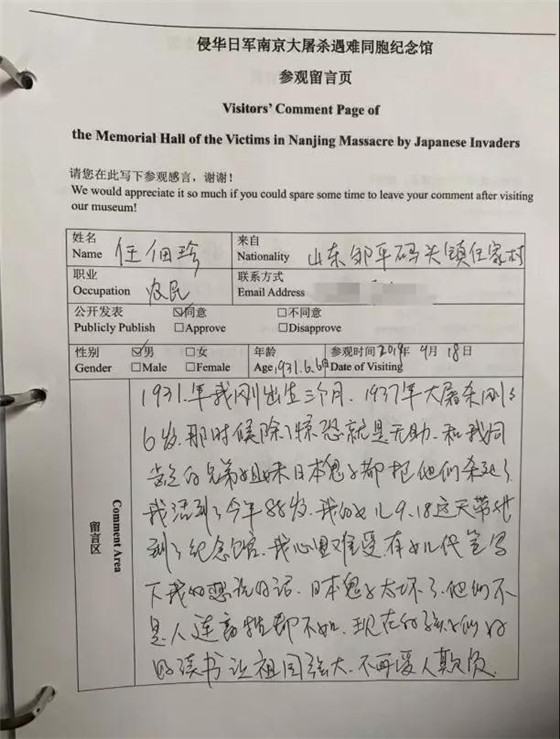 侵华日军南京大屠杀遇难同胞纪念馆
参观留言页
Visitors' Comment Page of
the Memorial Hall of the Victims in Nanjing Massacre by Japanese Invaders
请您在此写下参观感言，谢谢！
We would appreciate it so much if you could spare some time to leave your comment after visiting
our museum!
姓名
Name 任佃珍
来自
Nationality 山东邹平码头镇任家村
职业
Occupation 农民
联系方式
Email Address
公开发表 ☑同意 □不同意
Publicly Publish □Approve □Disapprove
性别 ☑男 □女
Gender □Male □Female
年龄
Age 1931.6.6日
参观时间 2019年9月18日
Date of Visiting
Comment Area
留言区
1931.年我刚出生三个月. 1937年大屠杀刚
6岁. 那时候除了惊恐就是无助. 和我同
龄的兄弟姐妹日本鬼子都把他们杀死了
我活到了今年88岁. 我的女儿9.18这天带
到了纪念馆. 我心里难受有女儿代笔写
下我的想说的话. 日本鬼子太坏了. 他们不
是人连畜牲都不如. 现在的孩子们好
好读书让祖国强大. 不再受人欺负.